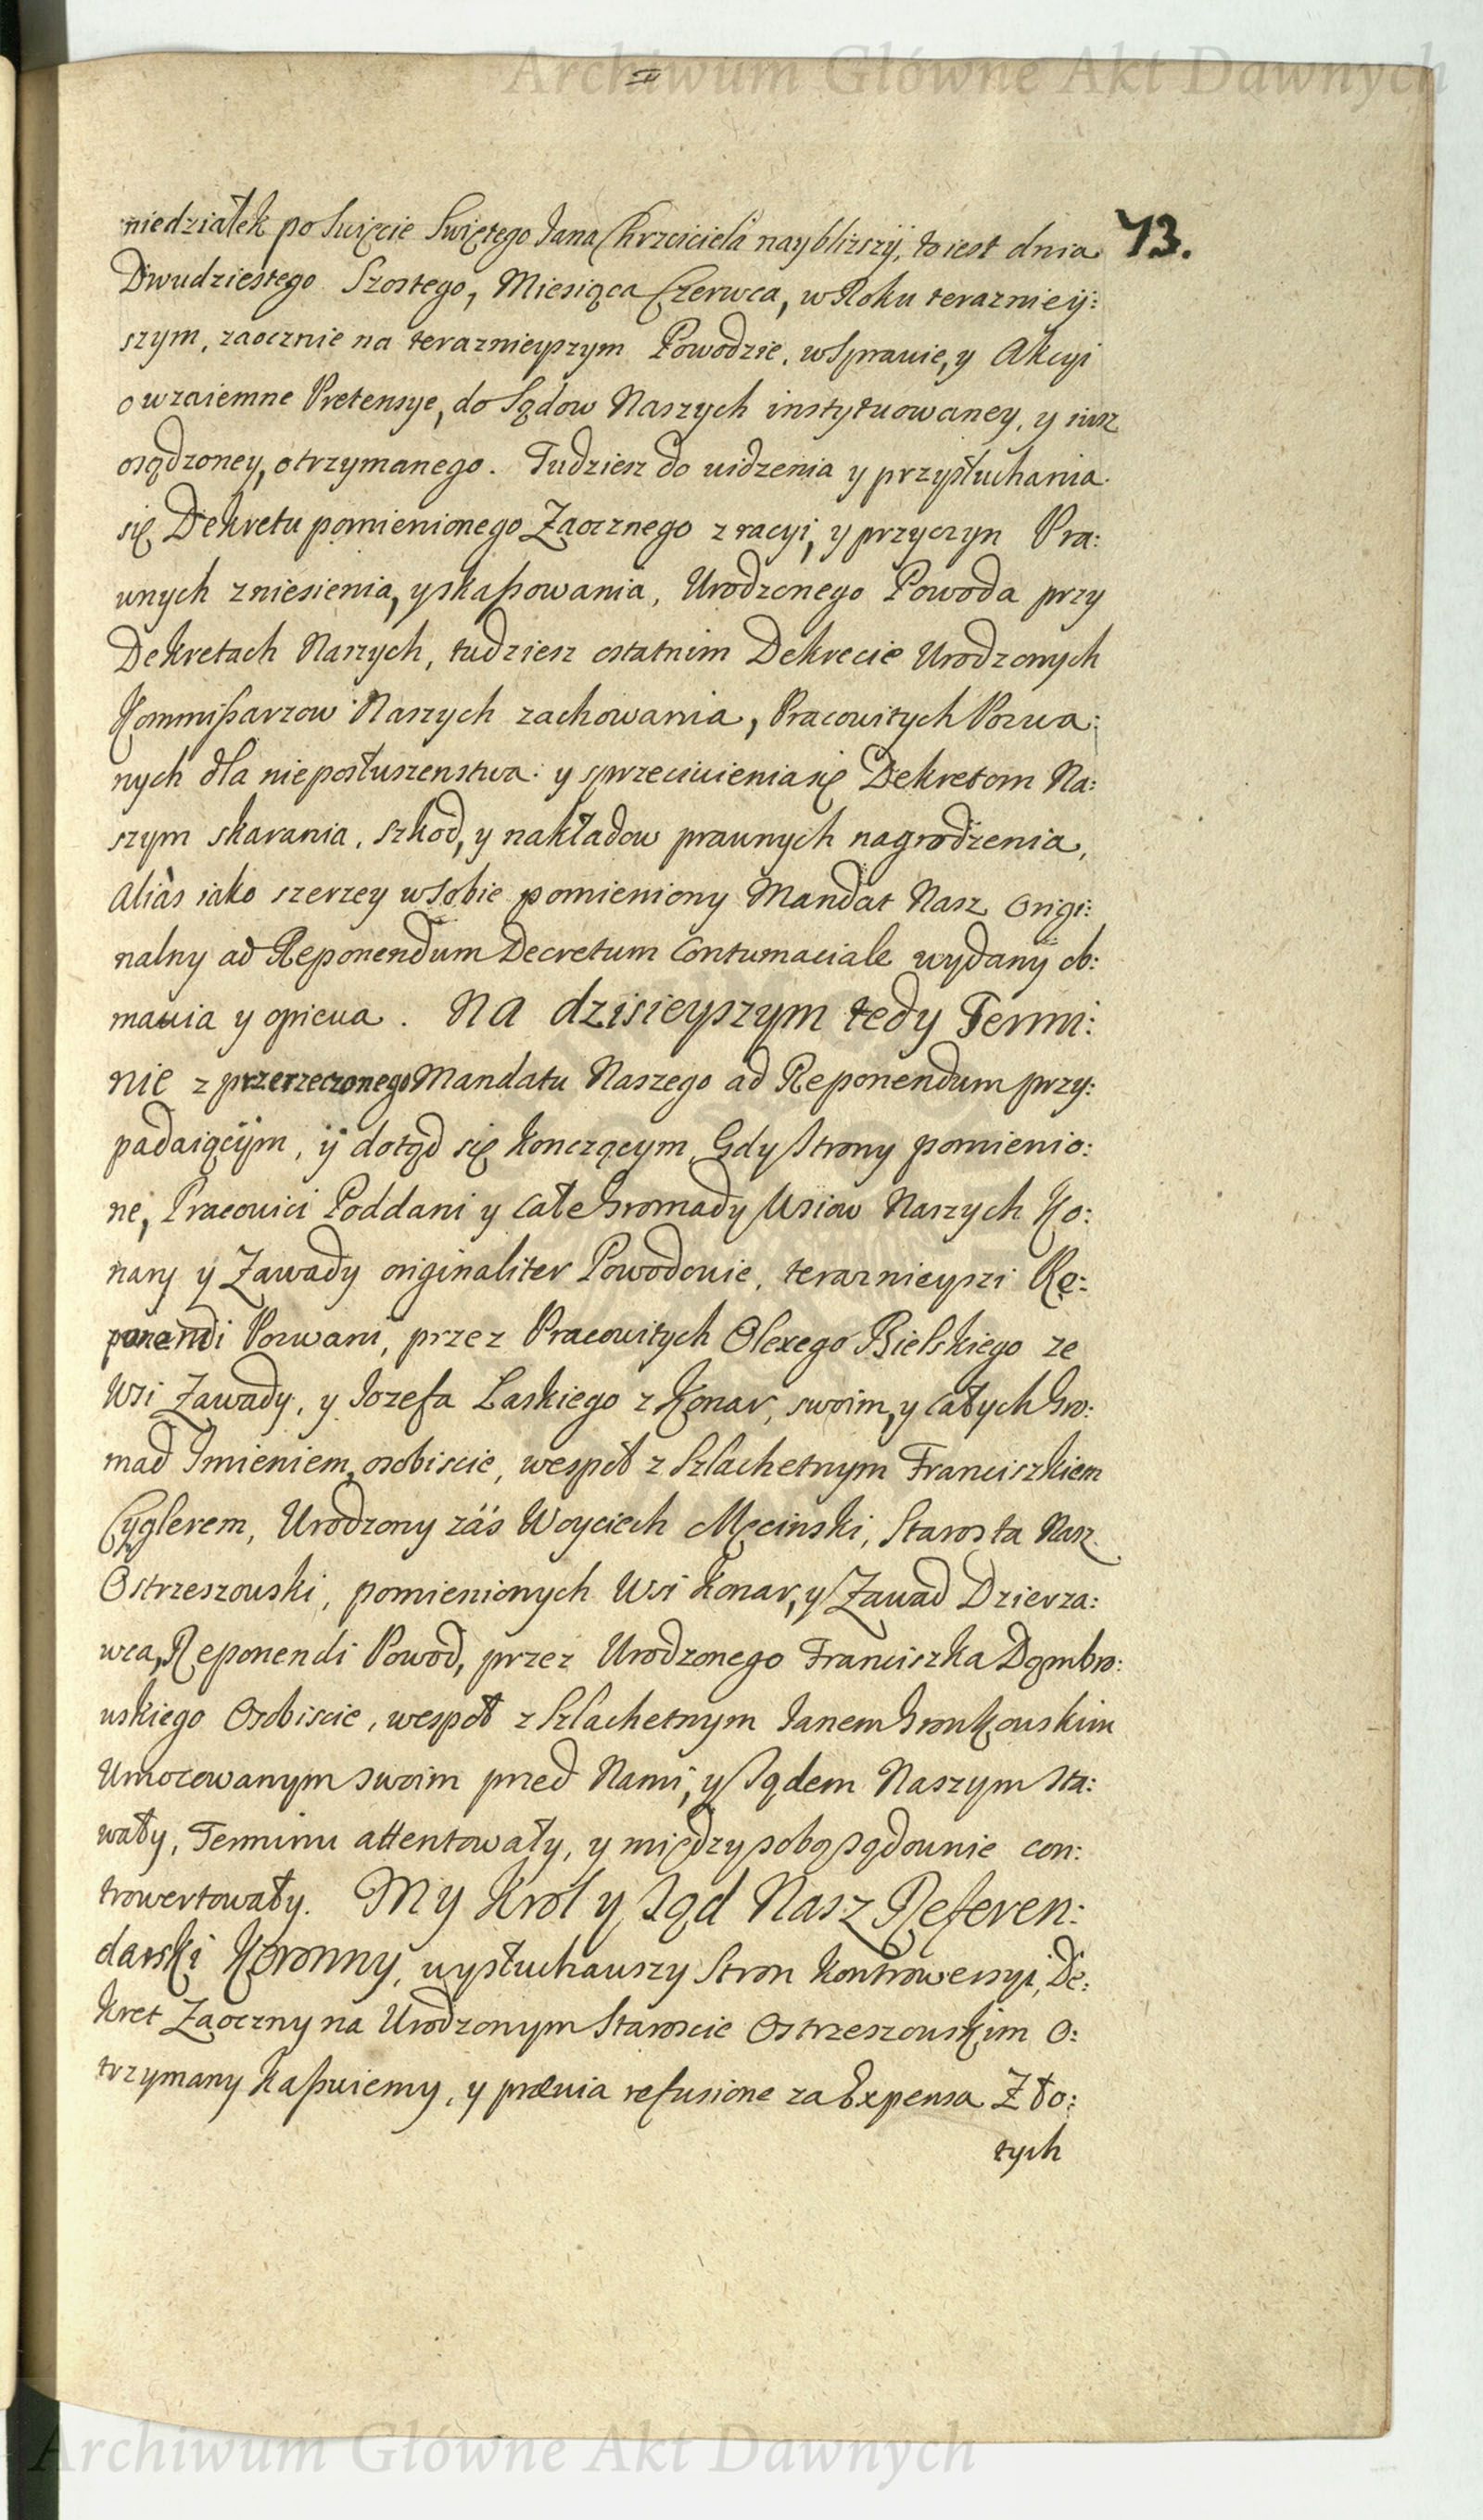 Archiwum Główne Akt Dawnych
niedziałek po Swięcie Swiętego Jana Chrzciciela nayblizszÿ, to iest dnia 73.
Dwudziestego Szostego, Miesiąca Czerwca, w Roku teraznieÿ:
szym, zaocznie na teraznieyszym Powodzie, w Sprawie, y Akcyi
o wzaiemne Pretensye, do Sądow Naszych instytuowaney, y iusz
osądzoney, otrzymanego. Tudziesz do widzenia y przysłuchania
się Dekretu pomienionego Zaocznego z racyi, y przyczyn Pra:
wnych zniesienia, y skaßowania, Urodzonego Powoda przy
Dekretach Naszych, tudziesz ostatnim Dekrecie Urodzonych
Kommißarzow Naszych zachowania, Pracowitych Pozwa:
nych dla nieposłuszenstwa y sprzeciwienia się Dekretom Na:
szym skarania, szkod, y nakładow prawnych nagrodzenia,
Alias iako szerzey w sobie pomieniony Mandat Nasz Origi:
nalny ad Reponendum Decretum Contumaciale wydanÿ ob:
mawia y opiewa. Na dzisieyszym tedy Termi:
nie z przerzeczonego Mandatu Naszego ad Reponendum przy:
padaiącÿm, ÿ dotąd się konczącym, Gdy Strony pomienio:
ne, Pracowici Poddani y całe Gromady Wsiow Naszych Ko:
nary ÿ Zawady originaliter Powodowie, teraznieyszi Re:
ponendi Pozwani, przez Pracowitych Olexego Bielskiego ze
Wsi Zawady, y Jozefa Laskiego z Konar, swoim, y całych Gro:
mad Imieniem, osobiscie, wespoł z Szlachetnym Franciszkiem
Cyglerem, Urodzony zas Woyciech Męcinski, Starosta Nasz
Ostrzeszowski, pomienionych Wsi Konar, y Zawad Dzierza:
wca, Reponendi Powod, przez Urodzonego Franciszka Dąmbro:
wskiego Osobiscie, wespoł z Szlachetnym Janem Gronkowskim
Umocowanym swoim przed Nami, y Sądem Naszym sta:
wały, Terminu attentowały, y między sobą sądownie con:
trowertowały. My Krol y Sąd Nasz Referen:
darski Koronny, wysłuchawszy Stron kontrowersyi, De:
kret Zaoczny na Urodzonym Staroscie Ostrzeszowskim o:
trzymany kaßuiemy, y prævia refusione za Expensa Zło:
tych
Archiwum Główne Akt Dawnych